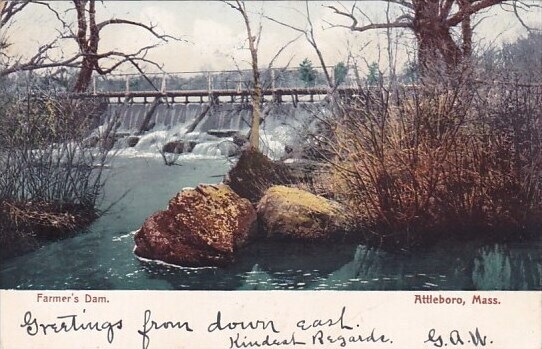 Farmer's Dam.
Attleboro, Mass.
Greetings from down east.
Kindest Regards.
G.A.W.